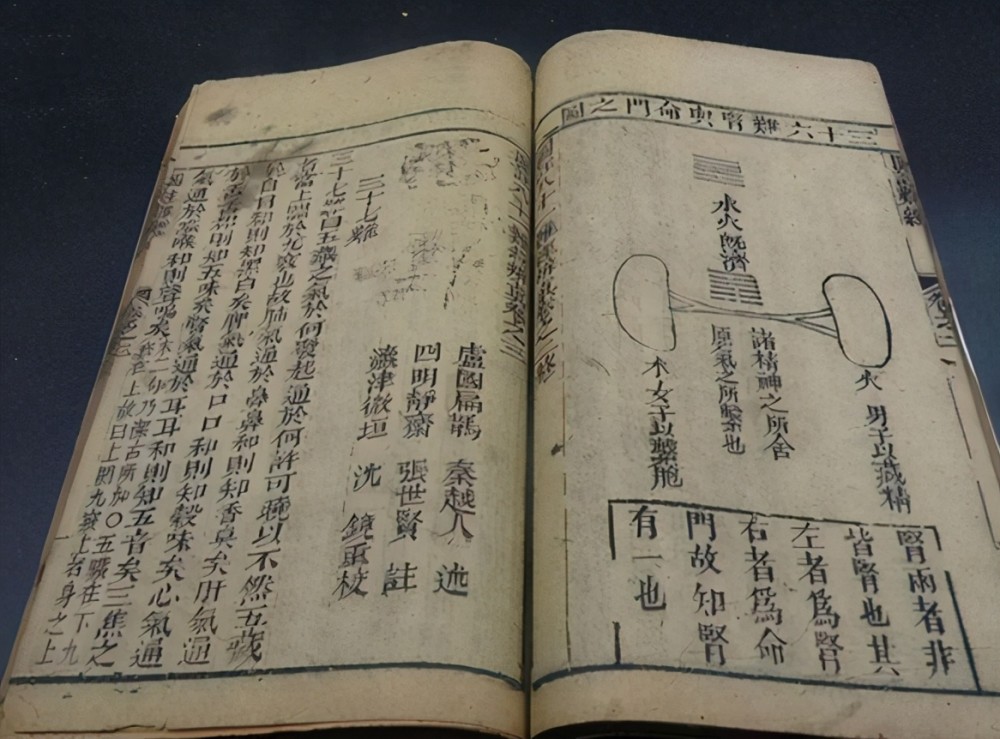 三十六難腎與命門之圖
水火既濟
火 男子以藏精
諸精神之所舍
原氣之所繫也
水 女子以繫胞
腎兩者非
皆腎也其
左者爲腎
右者爲命
門故知腎
有一也
盧國扁鵲 秦越人 述
四明靜齋 張世賢 註
津徽垣 沈 鏡重校
三十七難
三十七難曰五藏之氣於何發起通於何許可曉以不然五藏
者當上關於九竅也故肺氣通於鼻鼻和則知香臭矣肝氣通
於目目和則知黑白矣脾氣通於口口和則知穀味矣心氣通
於舌舌和則知五味矣腎氣通於耳耳和則知五音矣三焦之
氣通於喉喉和則聲鳴矣
末一句乃潔古所加〇五臟在下九
竅在上故曰上關九竅上者身之上